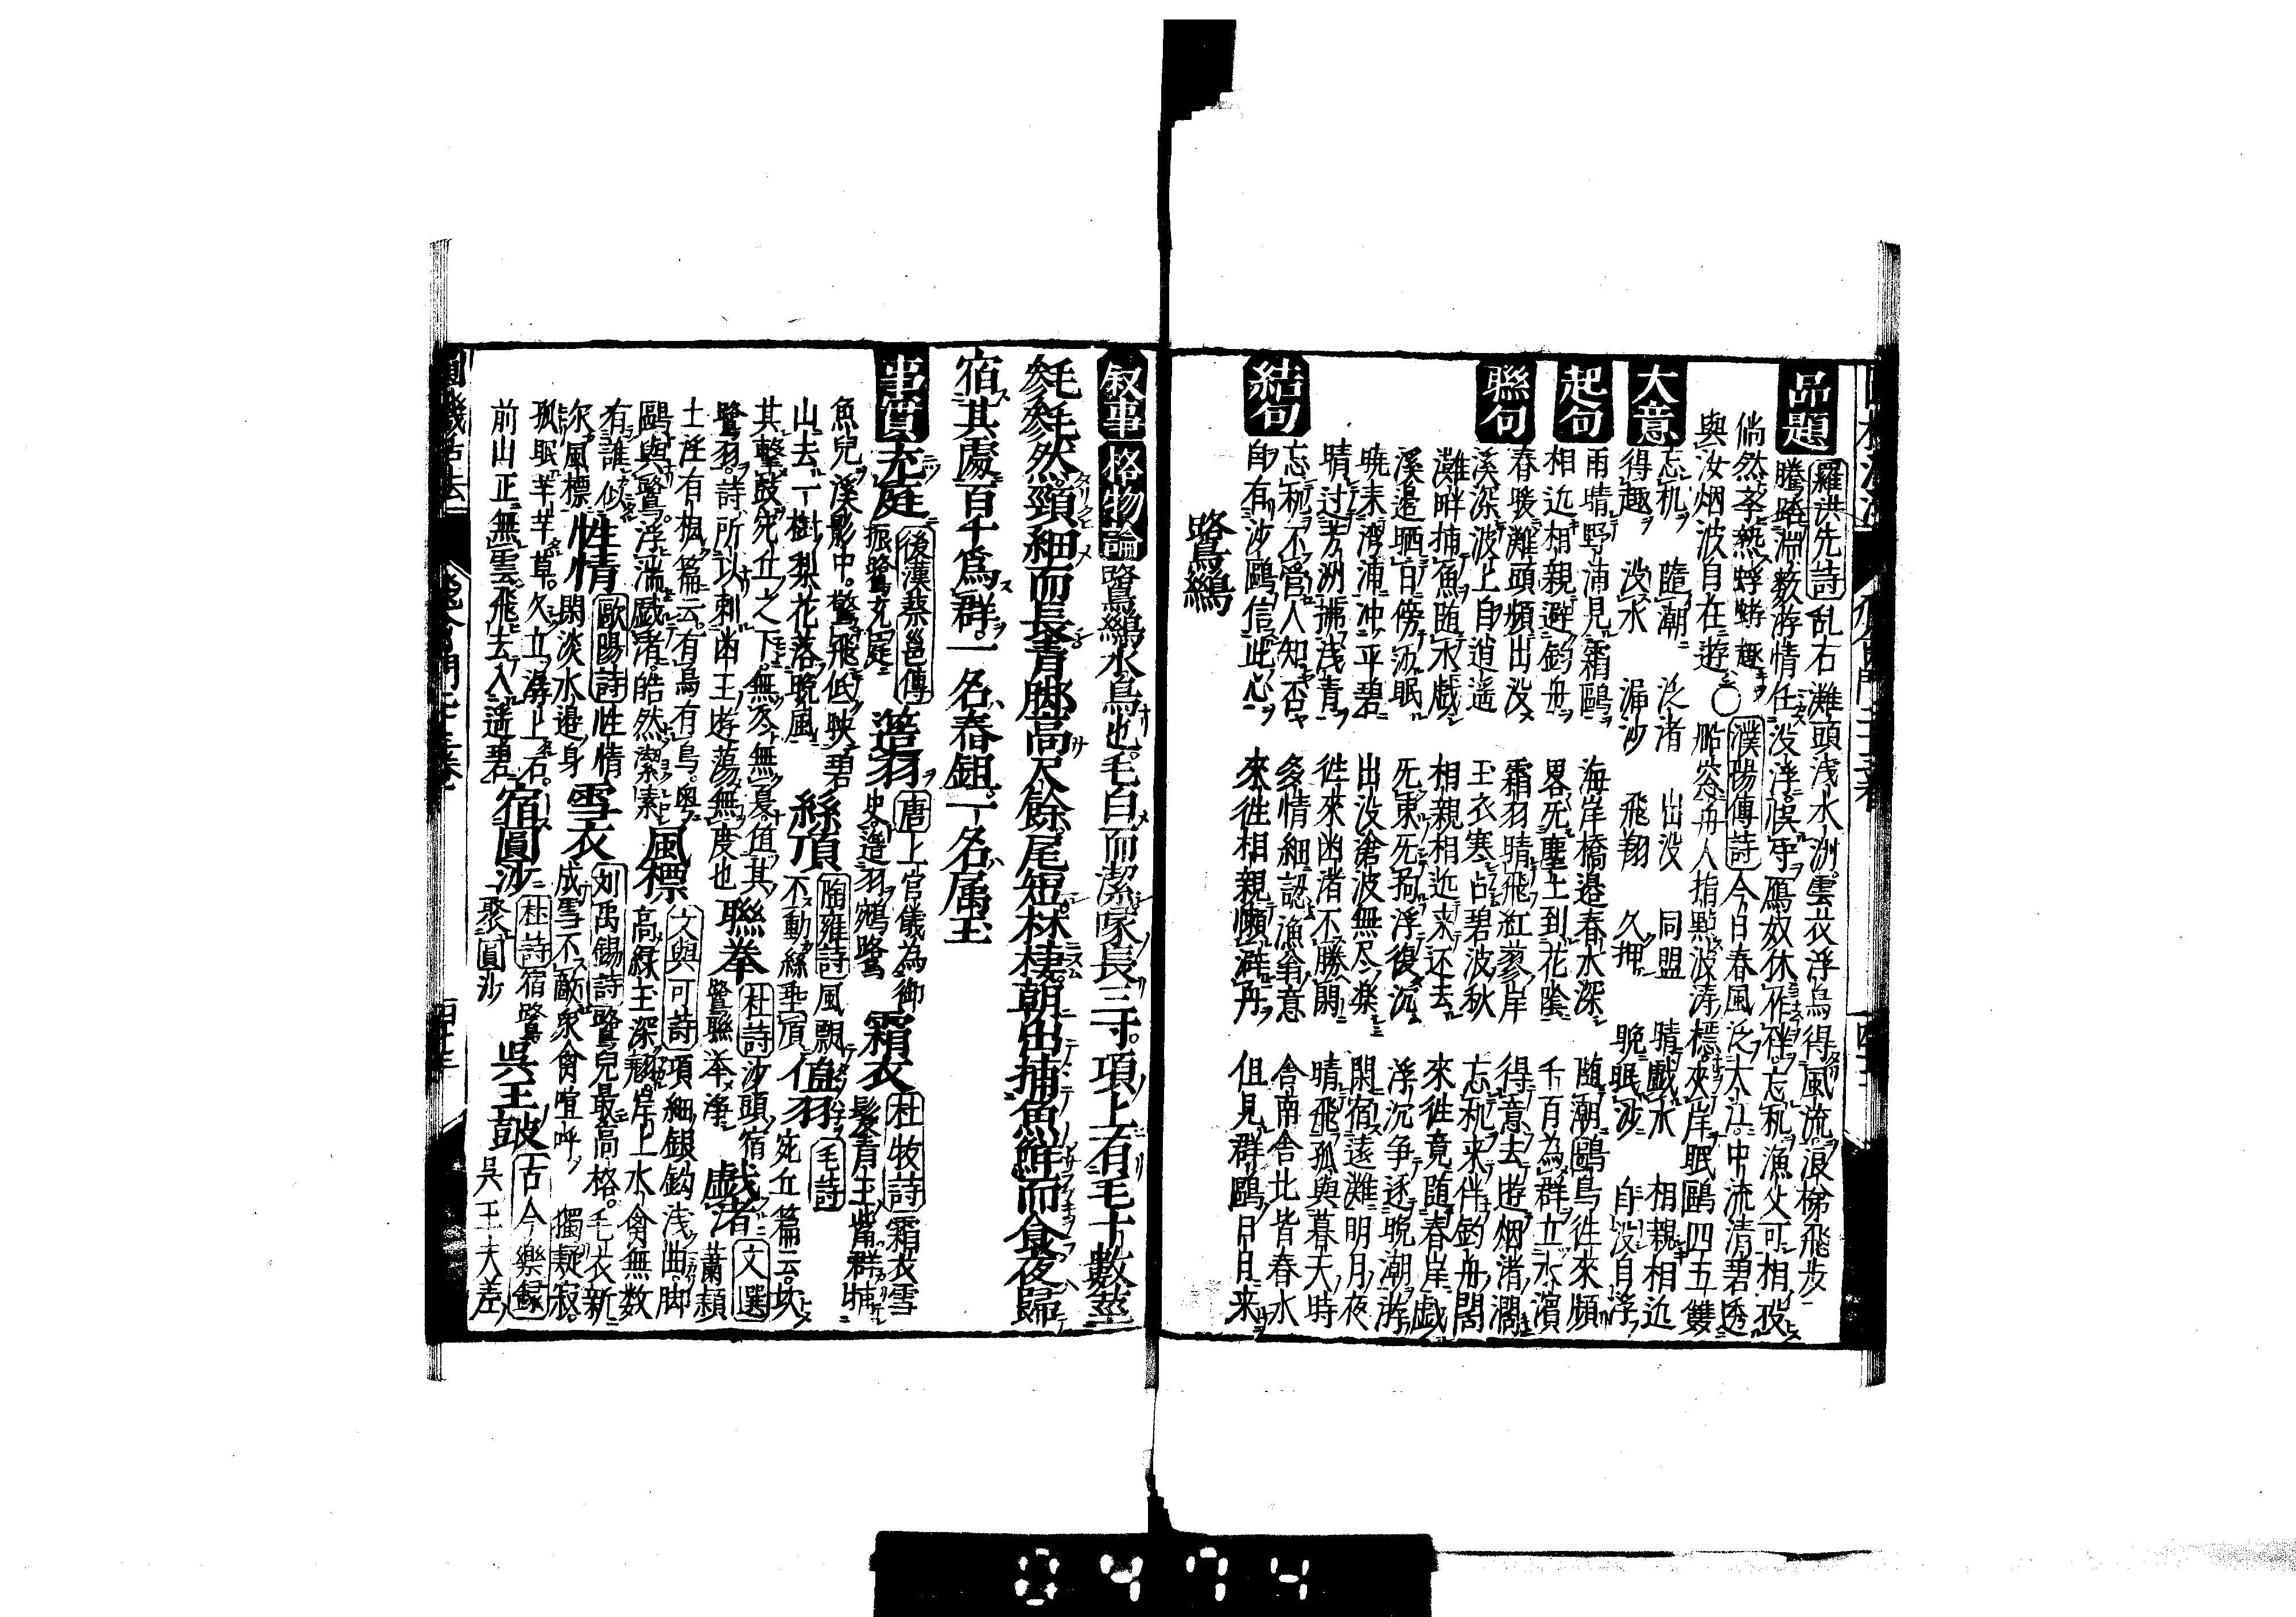 品題 羅洪先詩 乱石灘頭浅水洲雲衣浮鳥得風流浪梯飛步
騰路淵數游情任没浮誤守鴈奴休作伴忘机漁父可相投
倘然 蜉蝣趣〇濮陽傳詩 今日春風泛太江中流清碧透
與汝烟波自在遊 船窓舟人指點波涛標夾岸眠鷗四五雙
大意 忘机 隨潮 泛渚 出没 同盟 晴戯水 相親相近
得趣 没水 漏沙 飛翔 久押 晩眠沙 自没自浮
起句 雨晴野浦見霜鷗 海岸橋邉春水深 随潮鷗鳥徃來頻
相近相親避釣舟 畧死塵土到花陰 千百為群立水濱
聮句 春暖灘頭頻出没 霜羽晴飛紅蓼岸 得意去遊烟渚濶
溪深波上自逍遥 玉衣寒占碧波秋 忘机来伴釣舟閑
灘畔捕魚随水戯 相親相近来还去 來徃竟随春岸戯
溪邉晒日傍沥眠 死東死拘浮復沉 浮沉争逐晩潮游
暁来湾浦冲平碧 出没滄波無尽樂 閑宿遠灘明月夜
晴过芳洲拂浅青 徃來幽渚不勝閑 晴飛孤與暮天時
結句 忘机不管人知否 多情細認漁翁意 舎南舎北皆春水
自有沙鷗信此心 來徃相親懶避舟 但見群鷗日日来
鷺鷥
叙事 格物論 鷺鷥水鳥也毛白而潔喙長三寸項上有毛十數莖
毿毿然頸細而長青脚高尺餘尾短林棲朝出捕魚鮮而食夜歸
宿其處百千為群一名舂鉏一名属玉
事實 充庭 後漢蔡邕傳 振鷺充庭 造羽 唐上官儀為御史造羽鵷鷺 霜衣 杜牧詩 霜衣雪髪青玉觜群捕
魚兒溪影中驚飛低映碧山去一樹梨花落晩風 絲頂 陶雍詩 風飄不動絲垂頂 值羽 毛詩 宛丘篇云坎
其撃鼓宛丘之下無冬無夏值其鷺羽詩所以刺幽王遊蕩無度也 聮拳 杜詩 沙頭宿鷺聮拳浄 戯渚 文選 蕭頴
士涯有楓篇云有鳥有鳥奥鷗與鷺浮湍戯渚皓然潔素 風標 文與可詩 項細銀鈎浅曲脚高緑玉深翹岸上水禽無数
有誰似尓風標 性情 歐陽詩 性情閑淡水邉身 雪衣 刘禹錫詩 鷺兒最高格毛衣新成雪不敵衆禽喧呼獨凝寂
孤眠芊芊草久立潺上石 宿圓沙 杜詩 宿鷺聚圓沙 呉王鼓 古今樂録 呉王夫差
前山正無雲飛去入遥碧